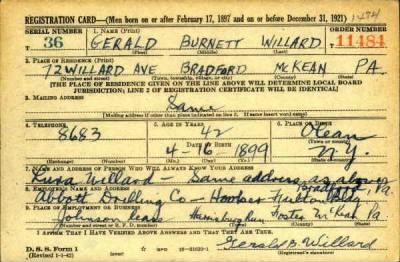 1484
REGISTRATION CARD—(Men born on or after February 17, 1897 and on or before December 31, 1921)
SERIAL NUMBER 1. NAME (Print) ORDER NUMBER
36 GERALD BURNETT WILLARD 11484
(First) (Middle) (Last)
2. PLACE OF RESIDENCE (Print)
72 WILLARD AVE BRADFORD McKEAN PA
(Number and street) (Town, township, village, or city) (County) (State)
[THE PLACE OF RESIDENCE GIVEN ON THE LINE ABOVE WILL DETERMINE LOCAL BOARD
JURISDICTION; LINE 2 OF REGISTRATION CERTIFICATE WILL BE IDENTICAL]
3. MAILING ADDRESS
Same
[Mailing address if other than place indicated on line 2. If same insert word same]
4. TELEPHONE 5. AGE IN YEARS 6. PLACE OF BIRTH
8683 42 Olean
DATE OF BIRTH (Town or county)
4-16-1899 N.Y.
(Exchange) (Number) (Mo.) (Day) (Yr.) (State or country)
7. NAME AND ADDRESS OF PERSON WHO WILL ALWAYS KNOW YOUR ADDRESS
Willard - Same address as above
8. EMPLOYER'S NAME AND ADDRESS Bradford, Pa.
Abbott Drilling Co - Hooker Fulton Bldg
9. PLACE OF EMPLOYMENT OR BUSINESS
Johnson Lease Run Foster McKean Pa.
(Number and street or R. F. D. number) (Town) (County) (State)
I AFFIRM THAT I HAVE VERIFIED ABOVE ANSWERS AND THAT THEY ARE TRUE.
D. S. S. Form 1
(Revised 1-1-42)
Gerald B. Willard